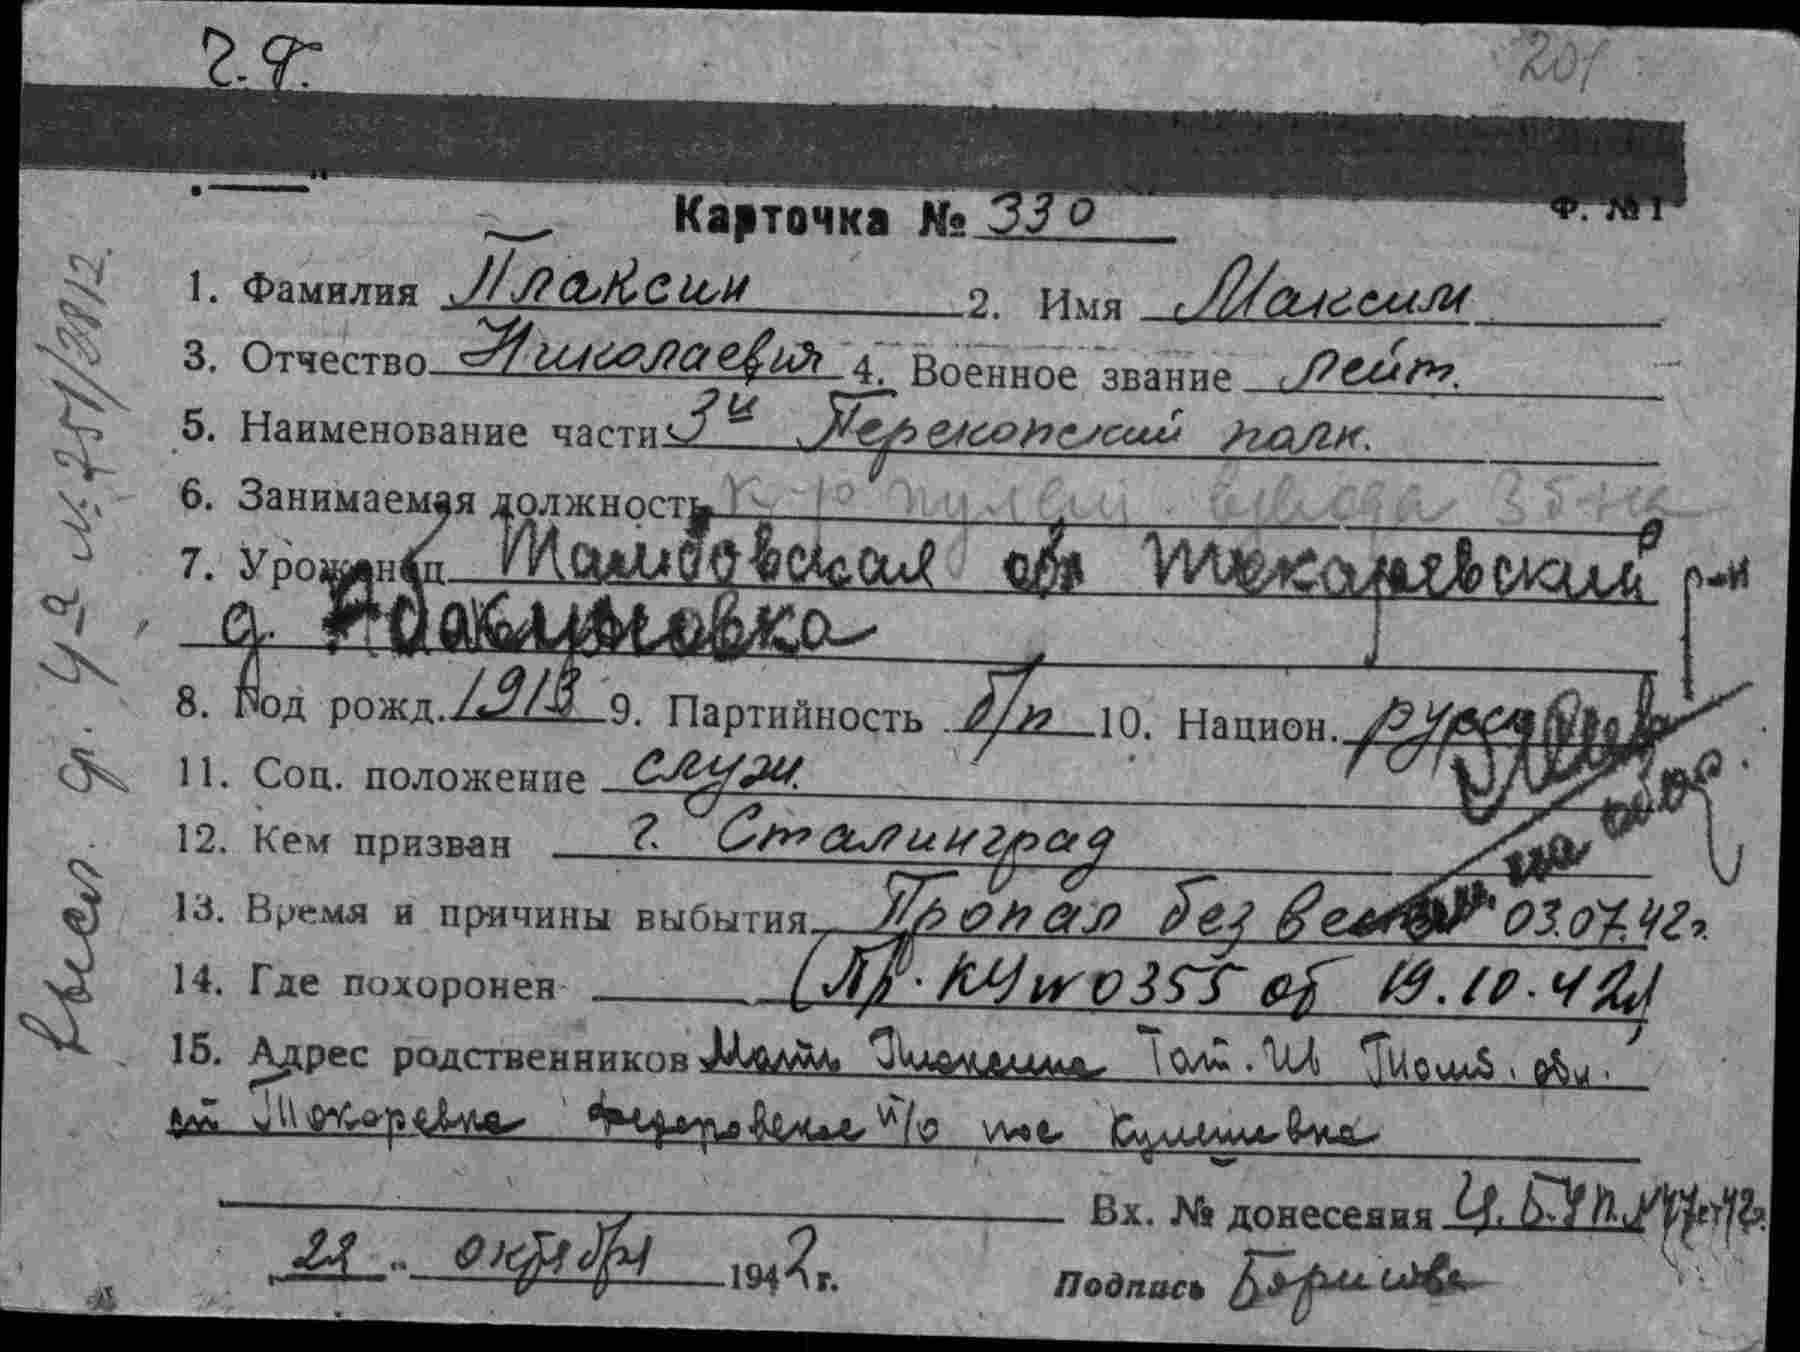 г.ф.
201
Ф. №1
Карточка № 330
1. Фамилия Плаксин 2. Имя Максим
3. Отчество Николаевич 4. Военное звание лейт.
5. Наименование части 3й Перекопский полк.
6. Занимаемая должность к-р пулем. взвода 3 б-на
7. Уроженец Тамбовская обл Токаревский р-н
д. Абакумовка
8. Год рожд. 1913 9. Партийность б/п 10. Национ. русск
11. Соц. положение служ.
12. Кем призван г. Сталинград
13. Время и причины выбытия Пропал без вести 03.07.42г.
14. Где похоронен (Пр. КЧ №0355 от 19.10.42г)
15. Адрес родственников Мать Плаксина Тат. Ив Тамб. обл.
ст Токаревка Федоровское п/о пос Кулешевка
Вх. № донесения Ц.Б.УП. №77 от 42г.
22 " октября 1942 г.
Подпись Борисова
на обор.